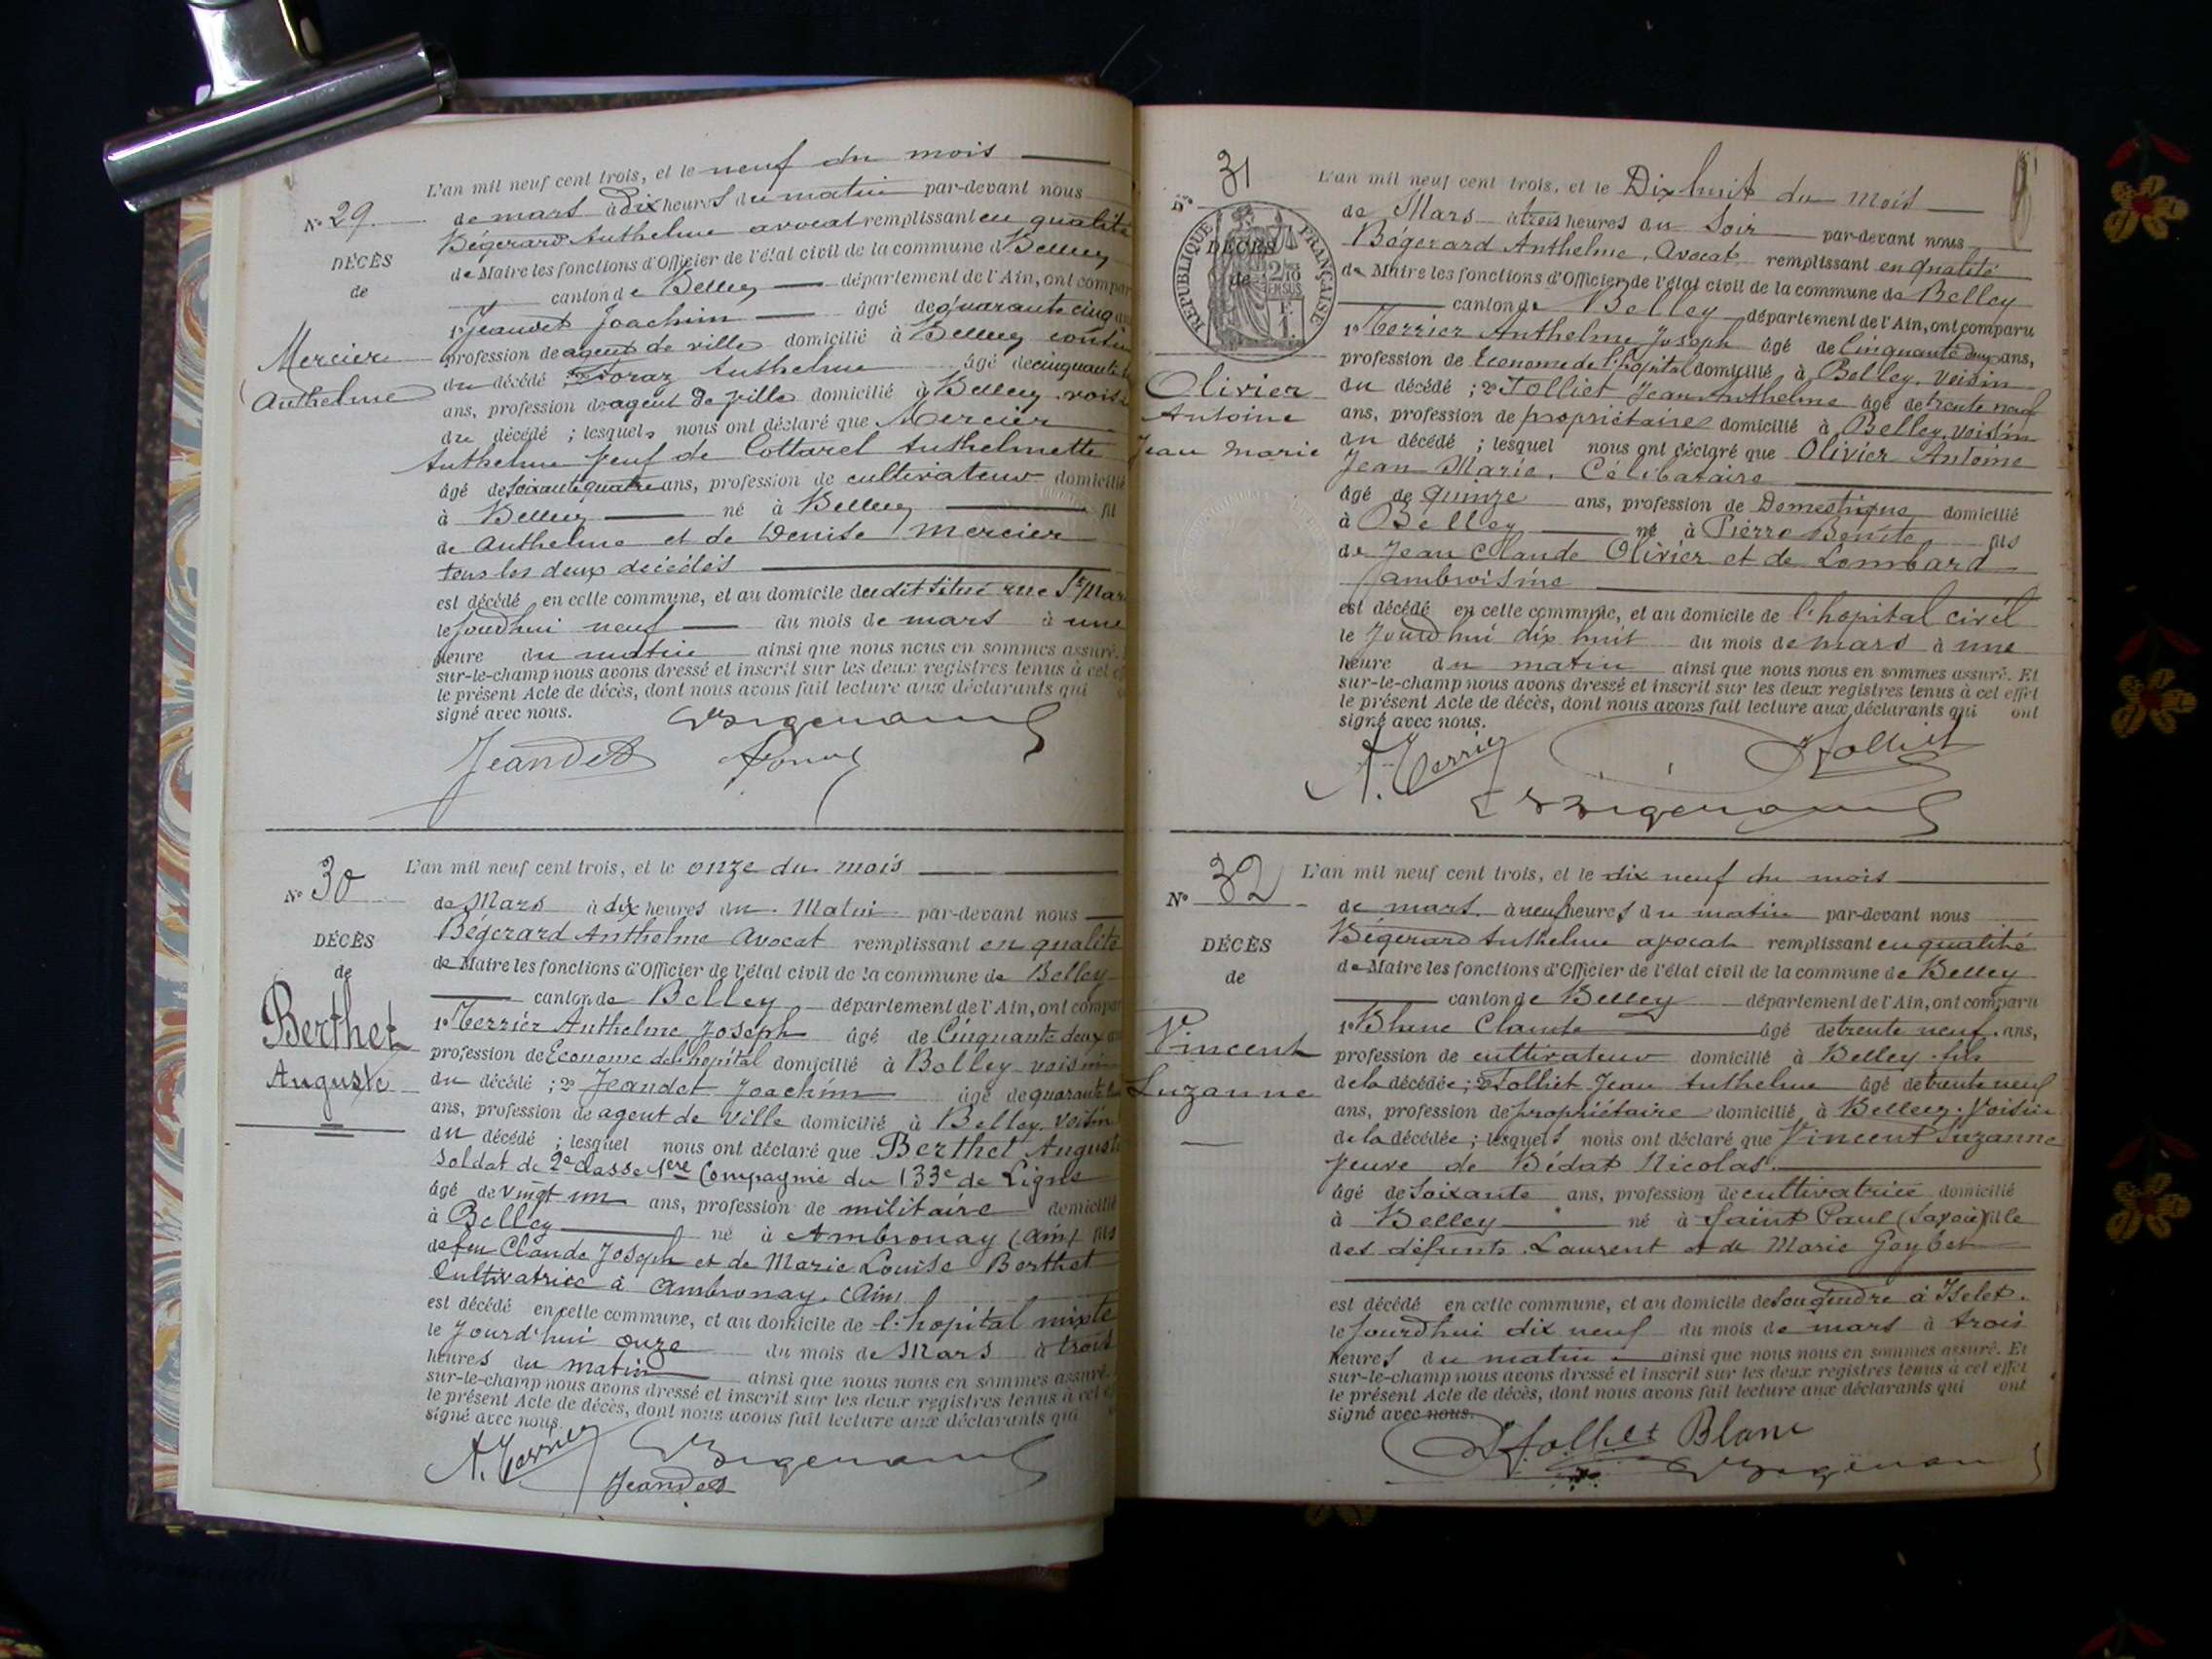 L'an mil neuf cent trois, et le neuf du mois
N° 29.
de mars à dix heures du matin par-devant nous
Bégerard Anthelme avocat remplissant en qualité
DÉCÈS
de Maire les fonctions d'Officier de l'état civil de la commune de Belley
de
canton de Belley département de l'Ain, ont compar
1° Jeandet Joachim âgé de quarante cinq
Mercier
Anthelme
profession de agent de ville domicilié à Belley
du décédé Anthelme âgé de cinquante
ans, profession de agent de ville domicilié à Belley
du décédé ; lesquels nous ont déclaré que Mercier
Anthelme veuf de Cottarel Anthelmette
âgé de soixante quatre ans, profession de cultivateur domicilié
à Belley né à Belley fil
de Anthelme et de Denise Mercier
tous les deux décédés
est décédé en cette commune, et au domicile dudit situé rue St Mar
le jourd'hui neuf du mois de mars à une
heure du matin ainsi que nous nous en sommes assuré.
sur-le-champ nous avons dressé et inscrit sur les deux registres tenus à cet ef
le présent Acte de décès, dont nous avons fait lecture aux déclarants qui
signé avec nous.
Bégerard
Jeandet
N° 30
L'an mil neuf cent trois, et le onze du mois
de Mars à dix heures du Matin par-devant nous
Bégerard Anthelme Avocat remplissant en qualité
DÉCÈS
de Maire les fonctions d'Officier de l'état civil de la commune de Belley
de
canton de Belley département de l'Ain, ont compar
Berthet
Auguste
1° Terrier Anthelme Joseph âgé de Cinquante deux
profession de Econome de l'hopital domicilié à Belley voisin
du décédé ; 2° Jeandet Joachim âgé de quarante
ans, profession de agent de Ville domicilié à Belley voisin
du décédé ; lesquel nous ont déclaré que Berthet August
Soldat de 2e classe 1ère Compagnie du 133e de Ligne
âgé de vingt un ans, profession de militaire domicilié
à Belley né à Ambronay (Ain) fils
de feu Claude Joseph et de Marie Louise Berthet
Cultivatrice à Ambronay (Ain)
est décédé en cette commune, et au domicile de l'hopital mixte
le jourd'hui onze du mois de Mars à trois
heures du matin ainsi que nous nous en sommes assuré.
sur-le-champ nous avons dressé et inscrit sur les deux registres tenus à cet e
le présent Acte de décès, dont nous avons fait lecture aux déclarants qui
signé avec nous.
A. Terrier Bégerard
Jeandet
31
L'an mil neuf cent trois, et le Dix huit du Mois
N°
REPUBLIQUE FRANÇAISE
de Mars à trois heures du Soir par-devant nous
DÉCÈS
Bégerard Anthelme, Avocat remplissant en qualité
de
de Maire les fonctions d'Officier de l'état civil de la commune de Belley
canton de Belley département de l'Ain, ont comparu
1° Terrier Anthelme Joseph âgé de Cinquante deux ans,
Olivier
Antoine
Jean Marie
profession de Econome de l'hopital domicilié à Belley, Voisin
du décédé ; 2° Tolliet Jean Anthelme âgé de trente neuf
ans, profession de propriétaire domicilié à Belley, voisin
du décédé ; lesquel nous ont déclaré que Olivier Antoine
Jean Marie, Célibataire
âgé de quinze ans, profession de Domestique domicilié
à Belley né à Pierre Bénite fils
de Jean Claude Olivier et de Lombard
ambroisine
est décédé en cette commune, et au domicile de l'hopital civil
le Jourd'hui dix huit du mois de mars à une
heure du matin ainsi que nous nous en sommes assuré. Et
sur-le-champ nous avons dressé et inscrit sur les deux registres tenus à cet effet
le présent Acte de décès, dont nous avons fait lecture aux déclarants qui ont
signé avec nous.
A. Terrier Tolliet
Bégerard
N° 32
L'an mil neuf cent trois, et le dix neuf du mois
de mars à neuf heures du matin par-devant nous
Bégerard Anthelme avocat remplissant en qualité
DÉCÈS
de Maire les fonctions d'Officier de l'état civil de la commune de Belley
de
canton de Belley département de l'Ain, ont comparu
Vincent
Suzanne
1° Blanc Claude âgé de trente neuf ans,
profession de cultivateur domicilié à Belley fils
de la décédée ; 2° Tolliet Jean Anthelme âgé de trente neuf
ans, profession de propriétaire domicilié à Belley. Voisin
de la décédée ; lesquels nous ont déclaré que Vincent Suzanne
veuve de Bédat Nicolas
âgé de soixante ans, profession de cultivatrice domicilié
à Belley né à Saint Paul (Savoie) fille
des défunts Laurent et de Marie Goybet
est décédé en cette commune, et au domicile de son gendre à
le jourd'hui dix neuf du mois de mars à trois
heures du matin ainsi que nous nous en sommes assuré. Et
sur-le-champ nous avons dressé et inscrit sur les deux registres tenus à cet effet
le présent Acte de décès, dont nous avons fait lecture aux déclarants qui ont
signé avec nous.
Tolliet Blanc
Bégerard